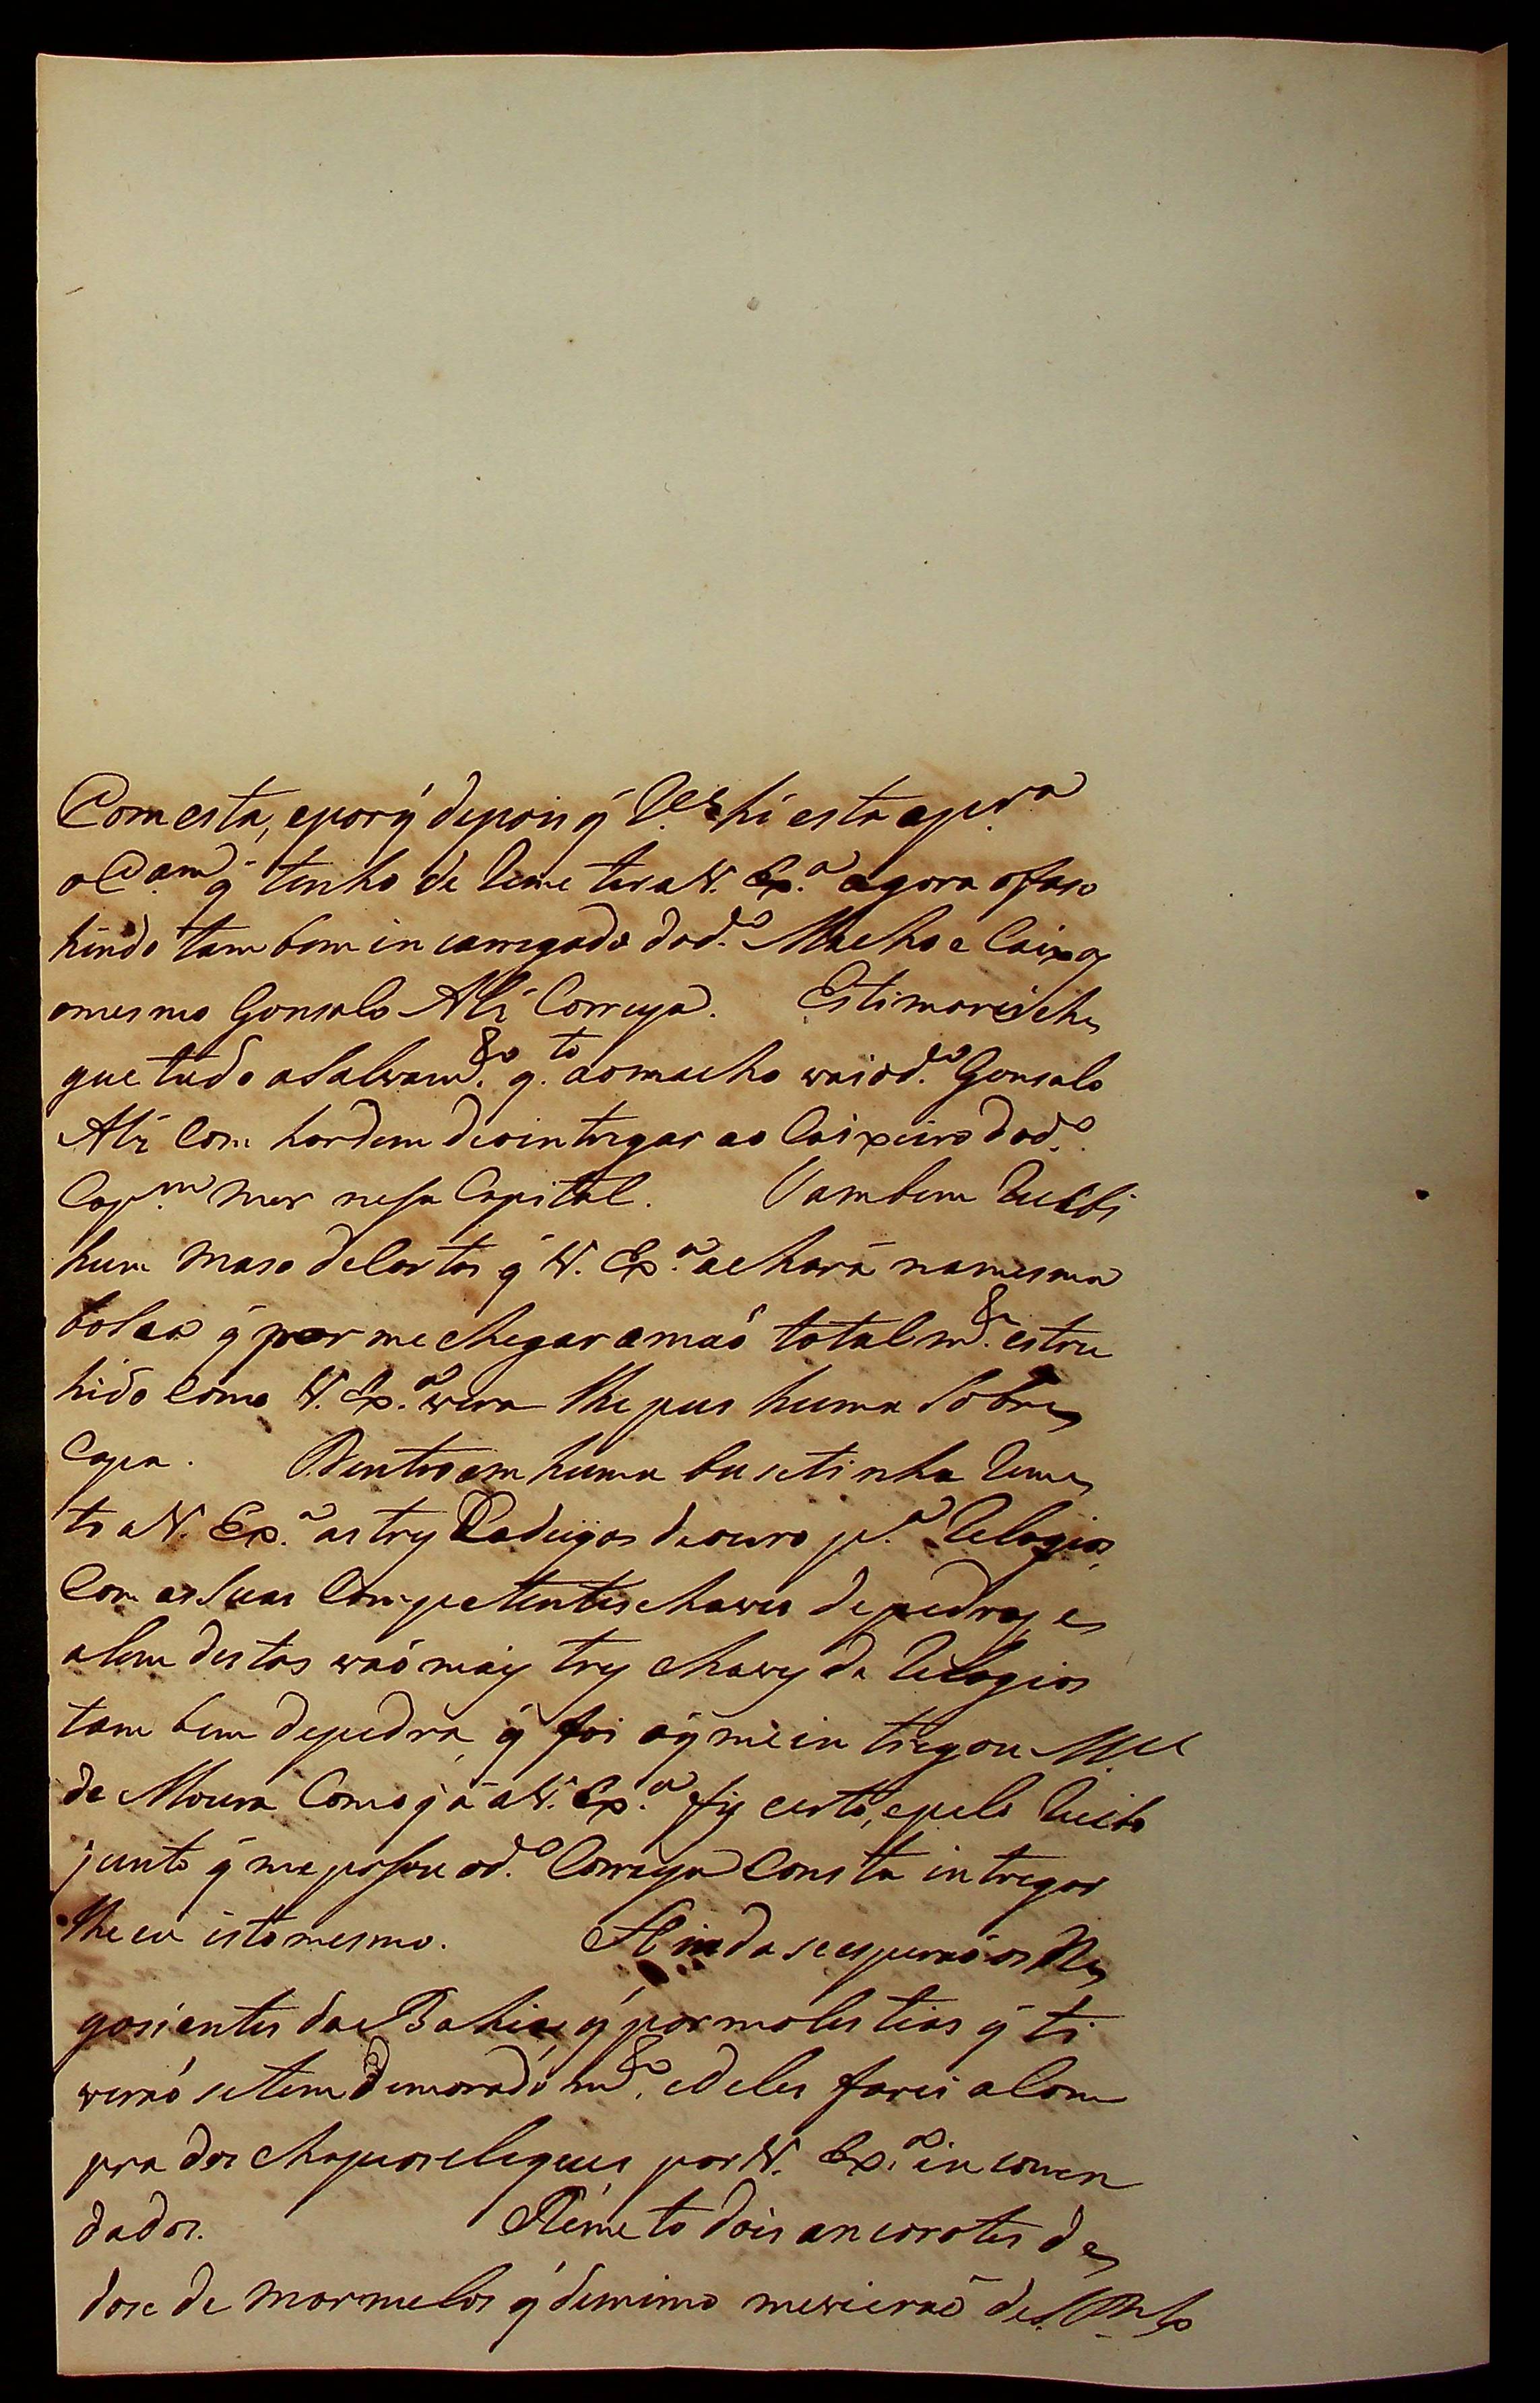 Com esta, e por q̃ depois q̃
q̃ tenho de Remeter a V. Ex.ª agora o faso
hindo tambem in carregado do d.º Macho e Caixoz
o mesmo Gonsalo Alz Correya. Estimarei che
gue tudo a Salvam.to q.to ao macho vai o d.º Gonsalo
Alz Com hordem de o intregar ao Caixeiro do d.º
Cap.m mor nesa Capital. Tambem Recebi
hum maso de Cartas q̃ V. Ex.ª achará na mesma
bolsa q̃ por me chegar a maõ totalm.e estru
hido Como V. Ex.ª vera lhe pus huma Sobre
Capa. Dentro em huma busetinha Reme
to a V. Ex.ª as trez Cadeiyas de ouro p.ª Relogios
Com as Suas Competentes chaves de pedras, e
alem destas vaõ maiz trez chavez de Relogios
tam bem de pedra, q̃ foi o q̃ me in tregou M.el
de Moura Como já a V. Ex.ª fiz certo, e pelo Recibo
junto q̃ me pasou o d.º Correya Consta intregar
lhe eu isto mesmo. Hinda se esperaõ os Ne
gosientes da Bahia, q̃ por molestias q̃ ti
veraõ se tem demorado m.to, e deles farei a Com
pra dos chapeos e leques por V. Ex.ª in comen
dados. Remeto dois ancorotes de
dose de marmelos q̃ de mimo me vieraõ de S. Plo